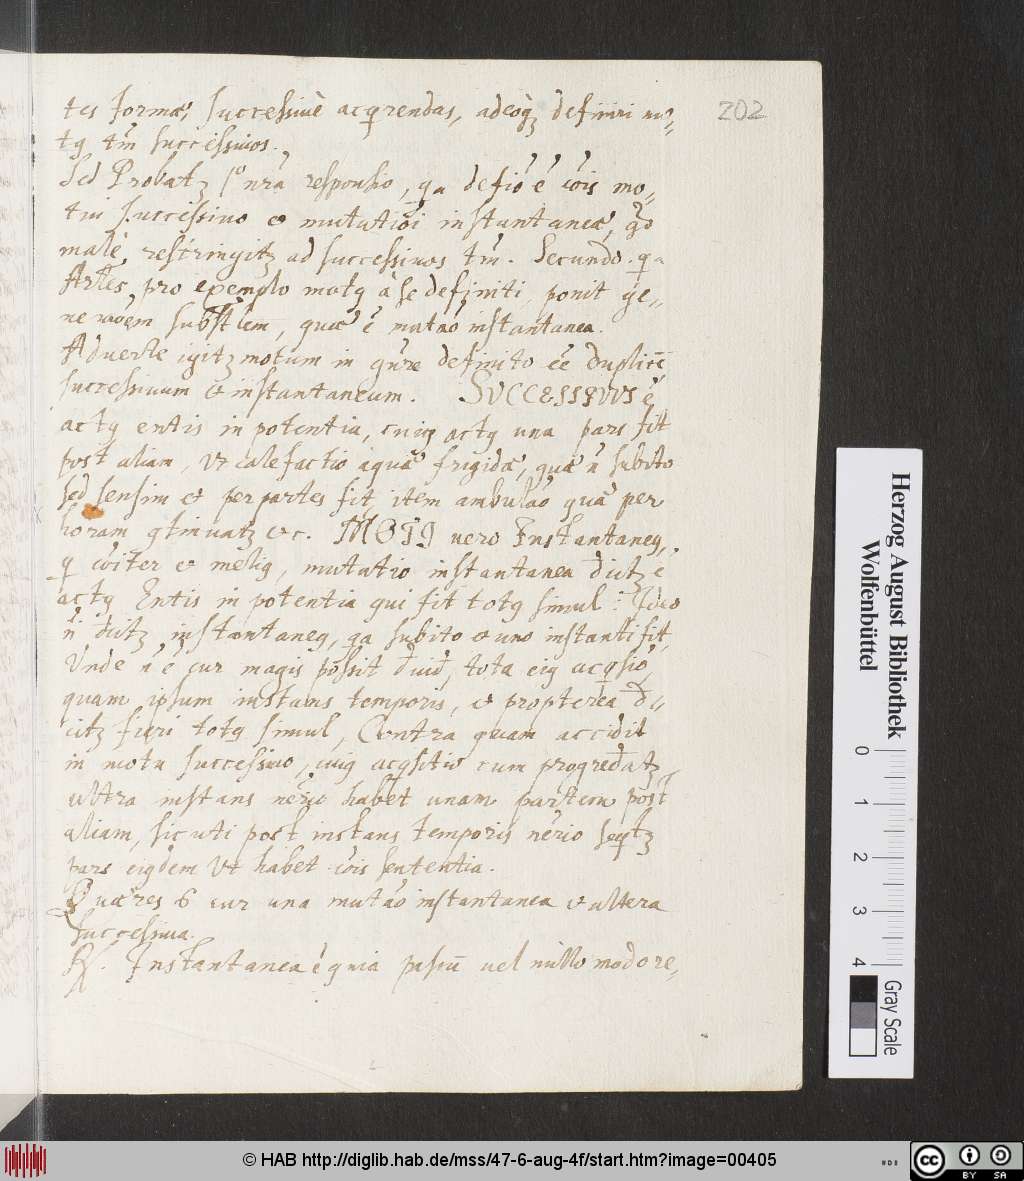 tes formas, successivè acqrendas, adeòq; definiri mo⸗
tq tm̄ successivos.
Sed Probatz 1º nr̄a responsio, qa defiō ē cōis mo⸗
tui successivo et mutatiōi instantaneæ, qd
malè restringitz ad successivos tm̄. Secundo. qa
Artles, pro exemplo motq à se definiti, ponit ge⸗
ne raōem substlem, quæ ē mutaō instantanea.
Adverte igitz motum in gn̄re definito ēē duplicē
successivum et instantaneum. SUCCESSIVUS ē
actq entis in potentia, cuiq actq una pars fit
post aliam, ut calefactio aquæ frigidæ, quæ n̄ subito
sed sensim et per partes fit, item ambulaō quæ per
horam qtmuatz &c. MOTq vero Instantaneq,
q cōiter et meliq, mutatio instantanea dicitz ē
actq Entis in potentia qui fit totq simul: Ideo
n̄ dicitz instantaneq, qa subito et uno instanti fit,
Unde n̄ ē cur magis possit dividi, tota eiq acqsiō,
quam ipsum instans temporis, et propterea di⸗
citz fieri totq simul, Contra quam accidit
in motu successivo, cuiq acqsitio cum progrediatz
ultra instans nēriò habet unam partem post
aliam, sicuti post instans temporis nēriò seqtz
pars eiqdem ut habet cōis sententia.
Quæres 6 cur una mutaō instantanea et altera
successiva.
R. Instantanea ē quia passū vel nullo modo re⸗
202
Herzog August Bibliothek
Wolfenbüttel
0 1 2 3 4
Gray Scale
© HAB http://diglib.hab.de/mss/47-6-aug-4f/start.htm?image=00405
cc BY SA